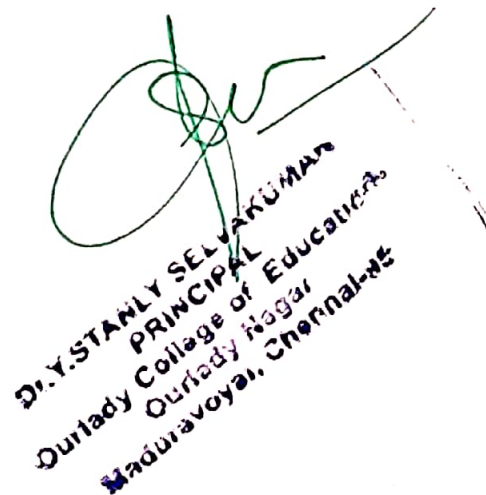 Dr.Y.STANLY SELVAKUMAR
PRINCIPAL
Ourlady Collage of Education,
Ourlady Nagar
Maduravoyal, Chennai-95